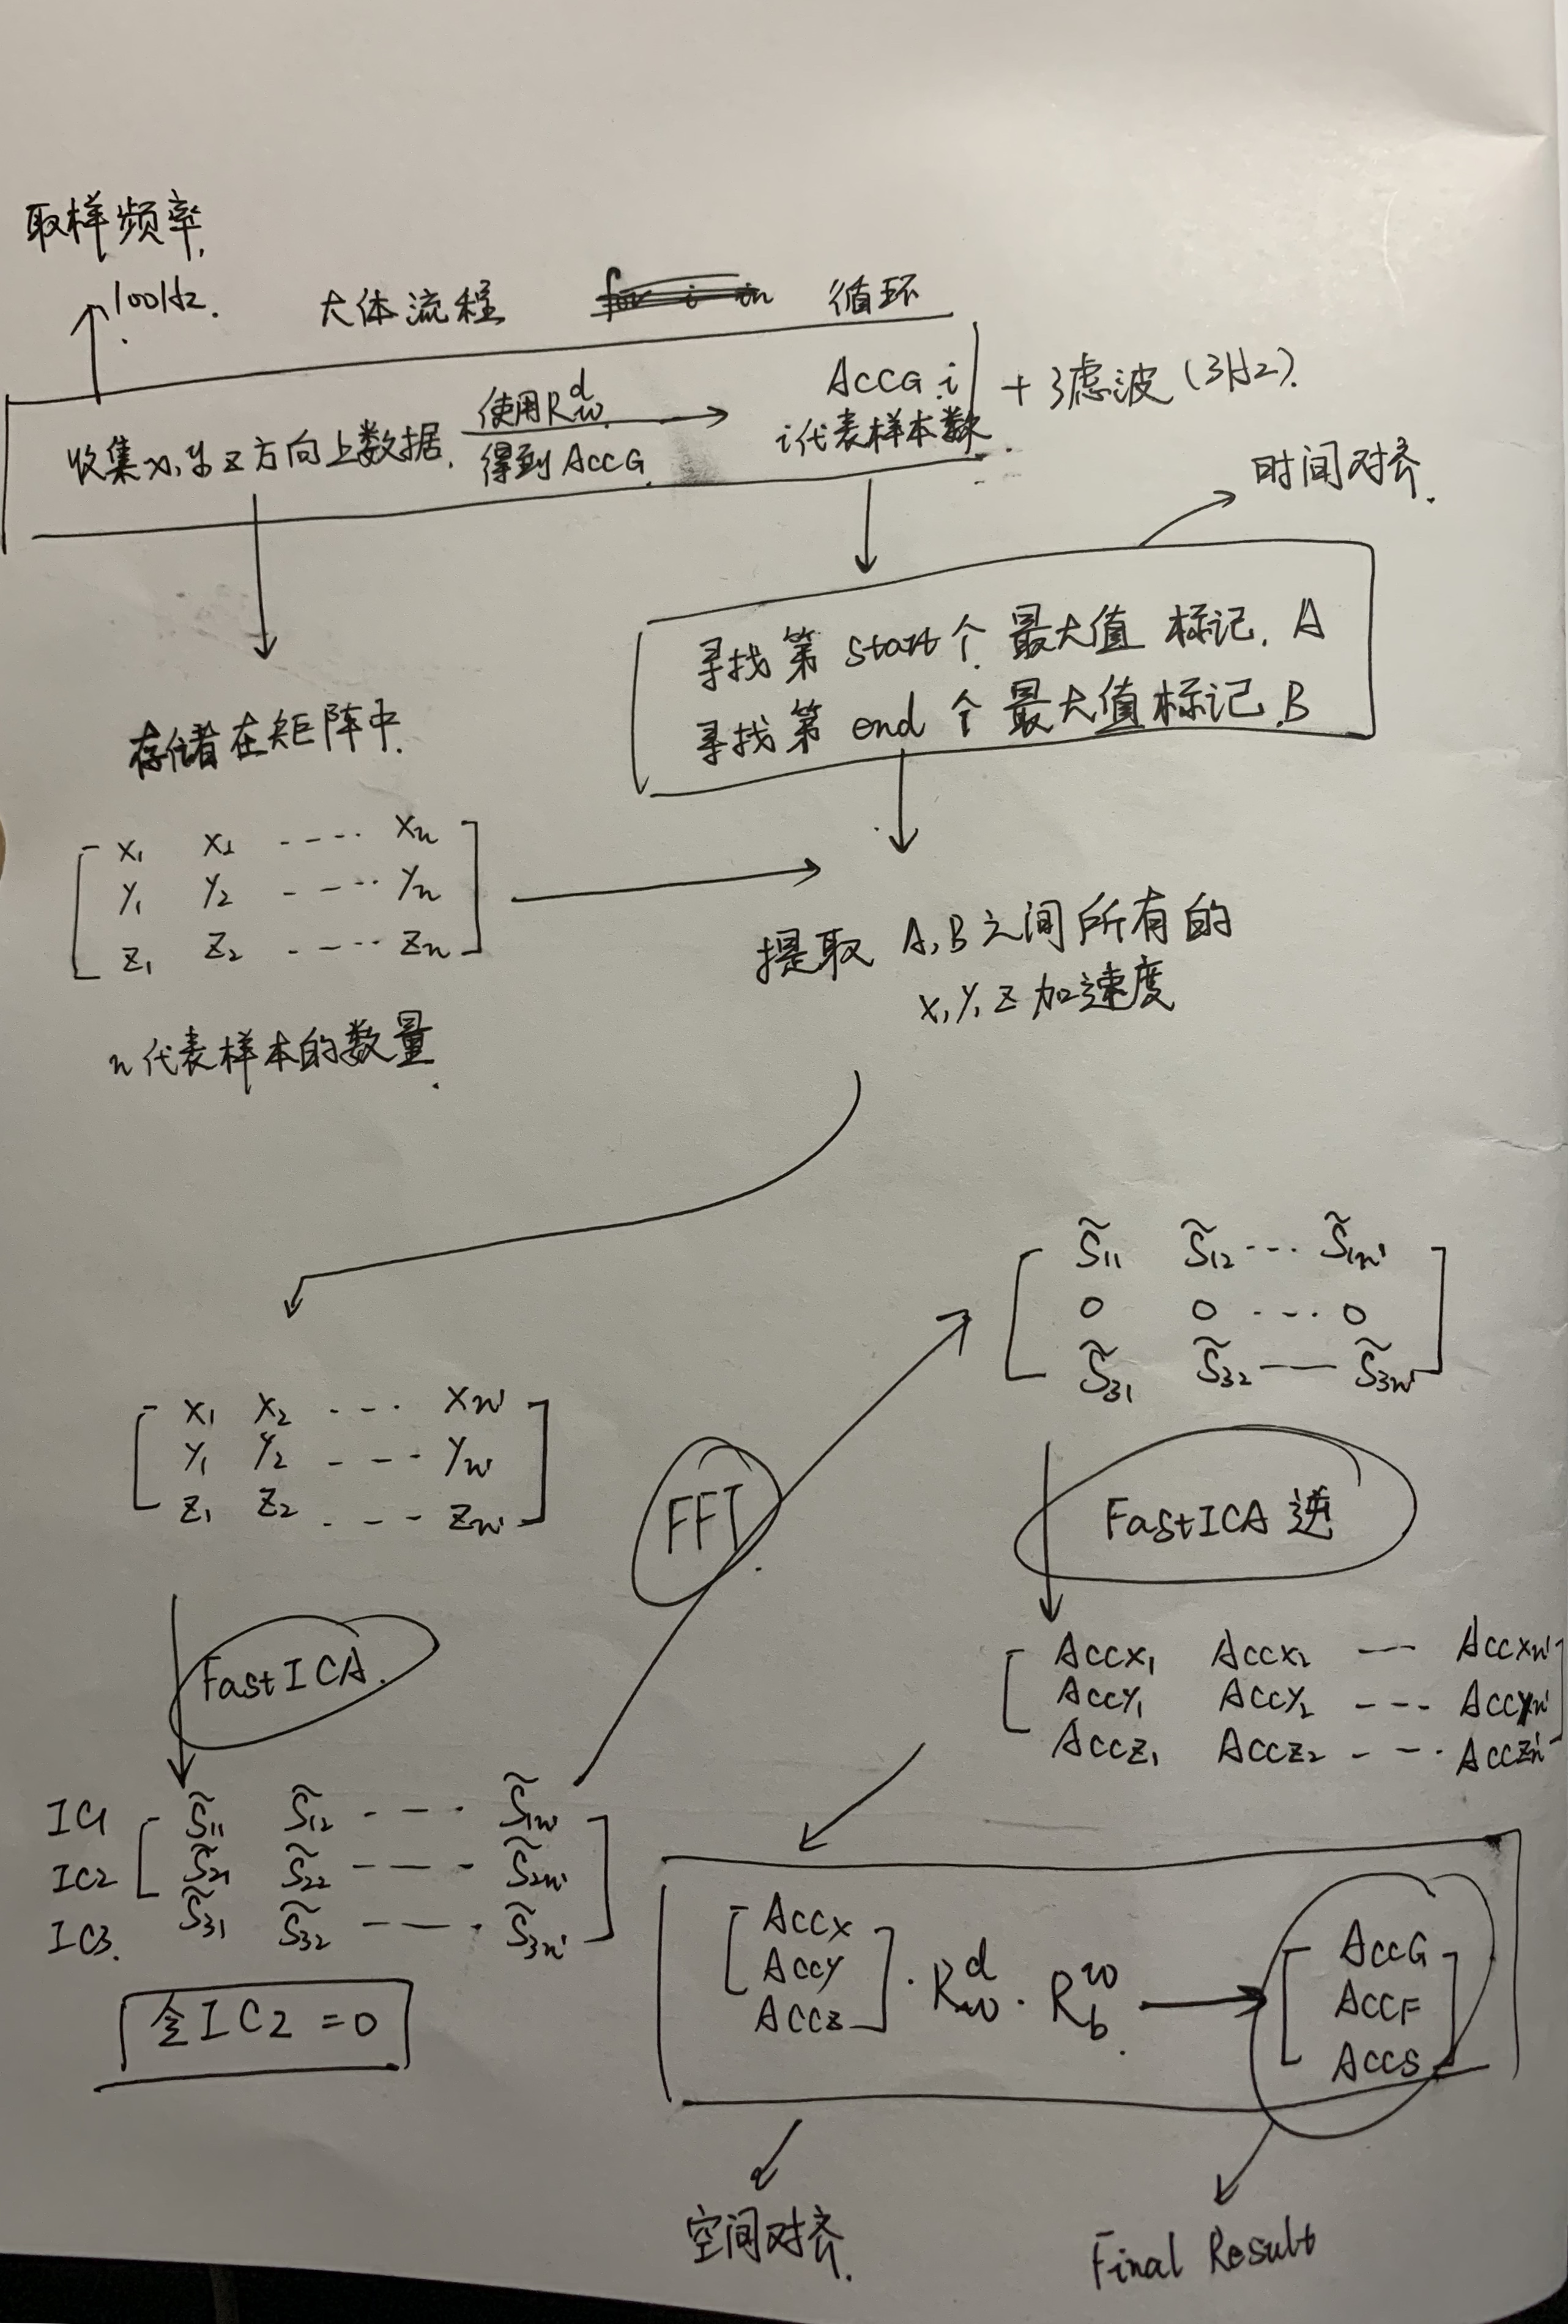 取样频率.
100Hz.
大体流程 循环
收集x,y,z方向上数据. 使用R^d_w. 得到ACCG. ACCG i
i代表样本数. + 滤波(3Hz).
时间对齐.
寻找第start个最大值 标记. A
寻找第end个最大值标记.B
存储在矩阵中.
x₁ x₂ ---·· xₙ
y₁ y₂ ---·· yₙ
z₁ z₂ ---·· zₙ
n代表样本的数量.
提取A,B之间所有的
x,y,z加速度
x₁ x₂ ---· xn'
y₁ y₂ ---· yn'
z₁ z₂ ---- zn'
FastICA.
IC1 S̃₁₁ S̃₁₂ ·---· S̃1n'
IC2 S̃₂₁ S̃₂₂ ----· S̃2n'
IC3. S̃₃₁ S̃₃₂ ----· S̃3n'
令IC2=0
FFT.
S̃₁₁ S̃₁₂ ··· S̃1n'
0 0 ···· 0
S̃₃₁ S̃₃₂ —— S̃3n'
FastICA逆
ACCX₁ ACCX₂ --- ACCXn'
ACCY₁ ACCY₂ --- ACCYn'
ACCZ₁ ACCZ₂ ---· ACCZn'
ACCX
ACCY
ACCZ
· R^d_w · R^w_b.
ACCG
ACCF
ACCS
空间对齐.
Final Result